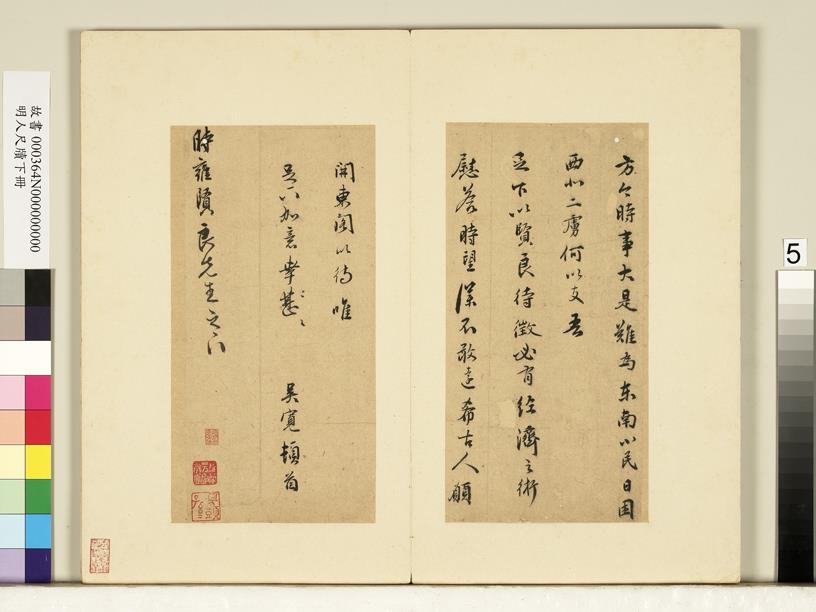 方今時事大是難為東南小民日困
西北二虜何以支吾
足下以賢良待徵必有經濟之術
慰答時望僕不敢遠希古人願
開東閣以待唯
足下加意幸甚幸甚
吳寬頓首
時雍賢良先生足下
故書 000364N000000000
明人尺牘下冊
5